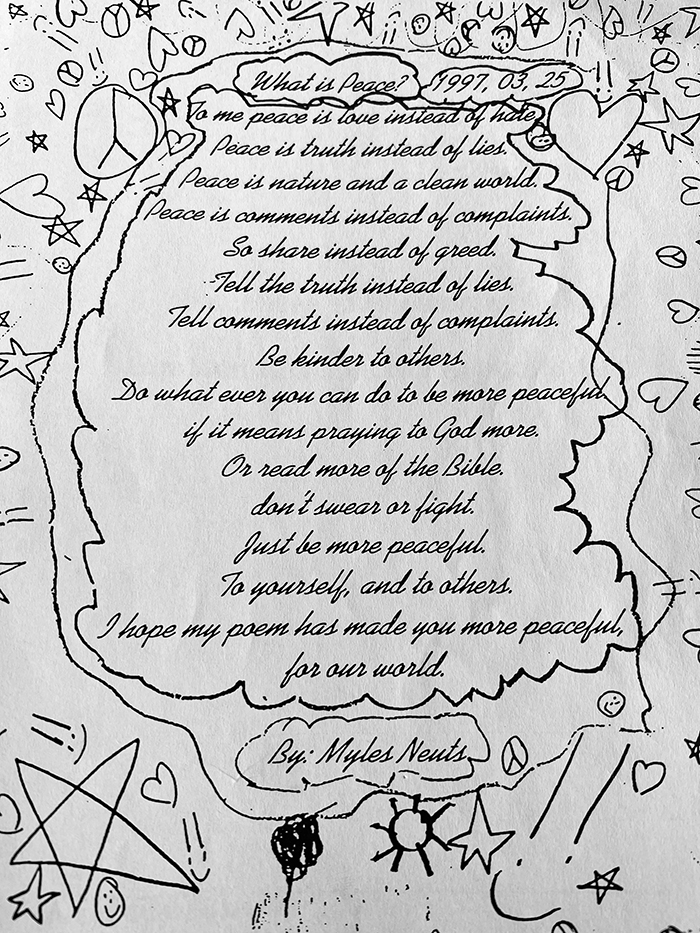 What is Peace? 1997, 03, 25
To me peace is love instead of hate,
Peace is truth instead of lies.
Peace is nature and a clean world.
Peace is comments instead of complaints.
So share instead of greed.
Tell the truth instead of lies.
Tell comments instead of complaints.
Be kinder to others.
Do what ever you can do to be more peaceful
if it means praying to God more.
Or read more of the Bible.
don't swear or fight.
Just be more peaceful.
To yourself, and to others.
I hope my poem has made you more peaceful,
for our world.
By: Myles Neuts